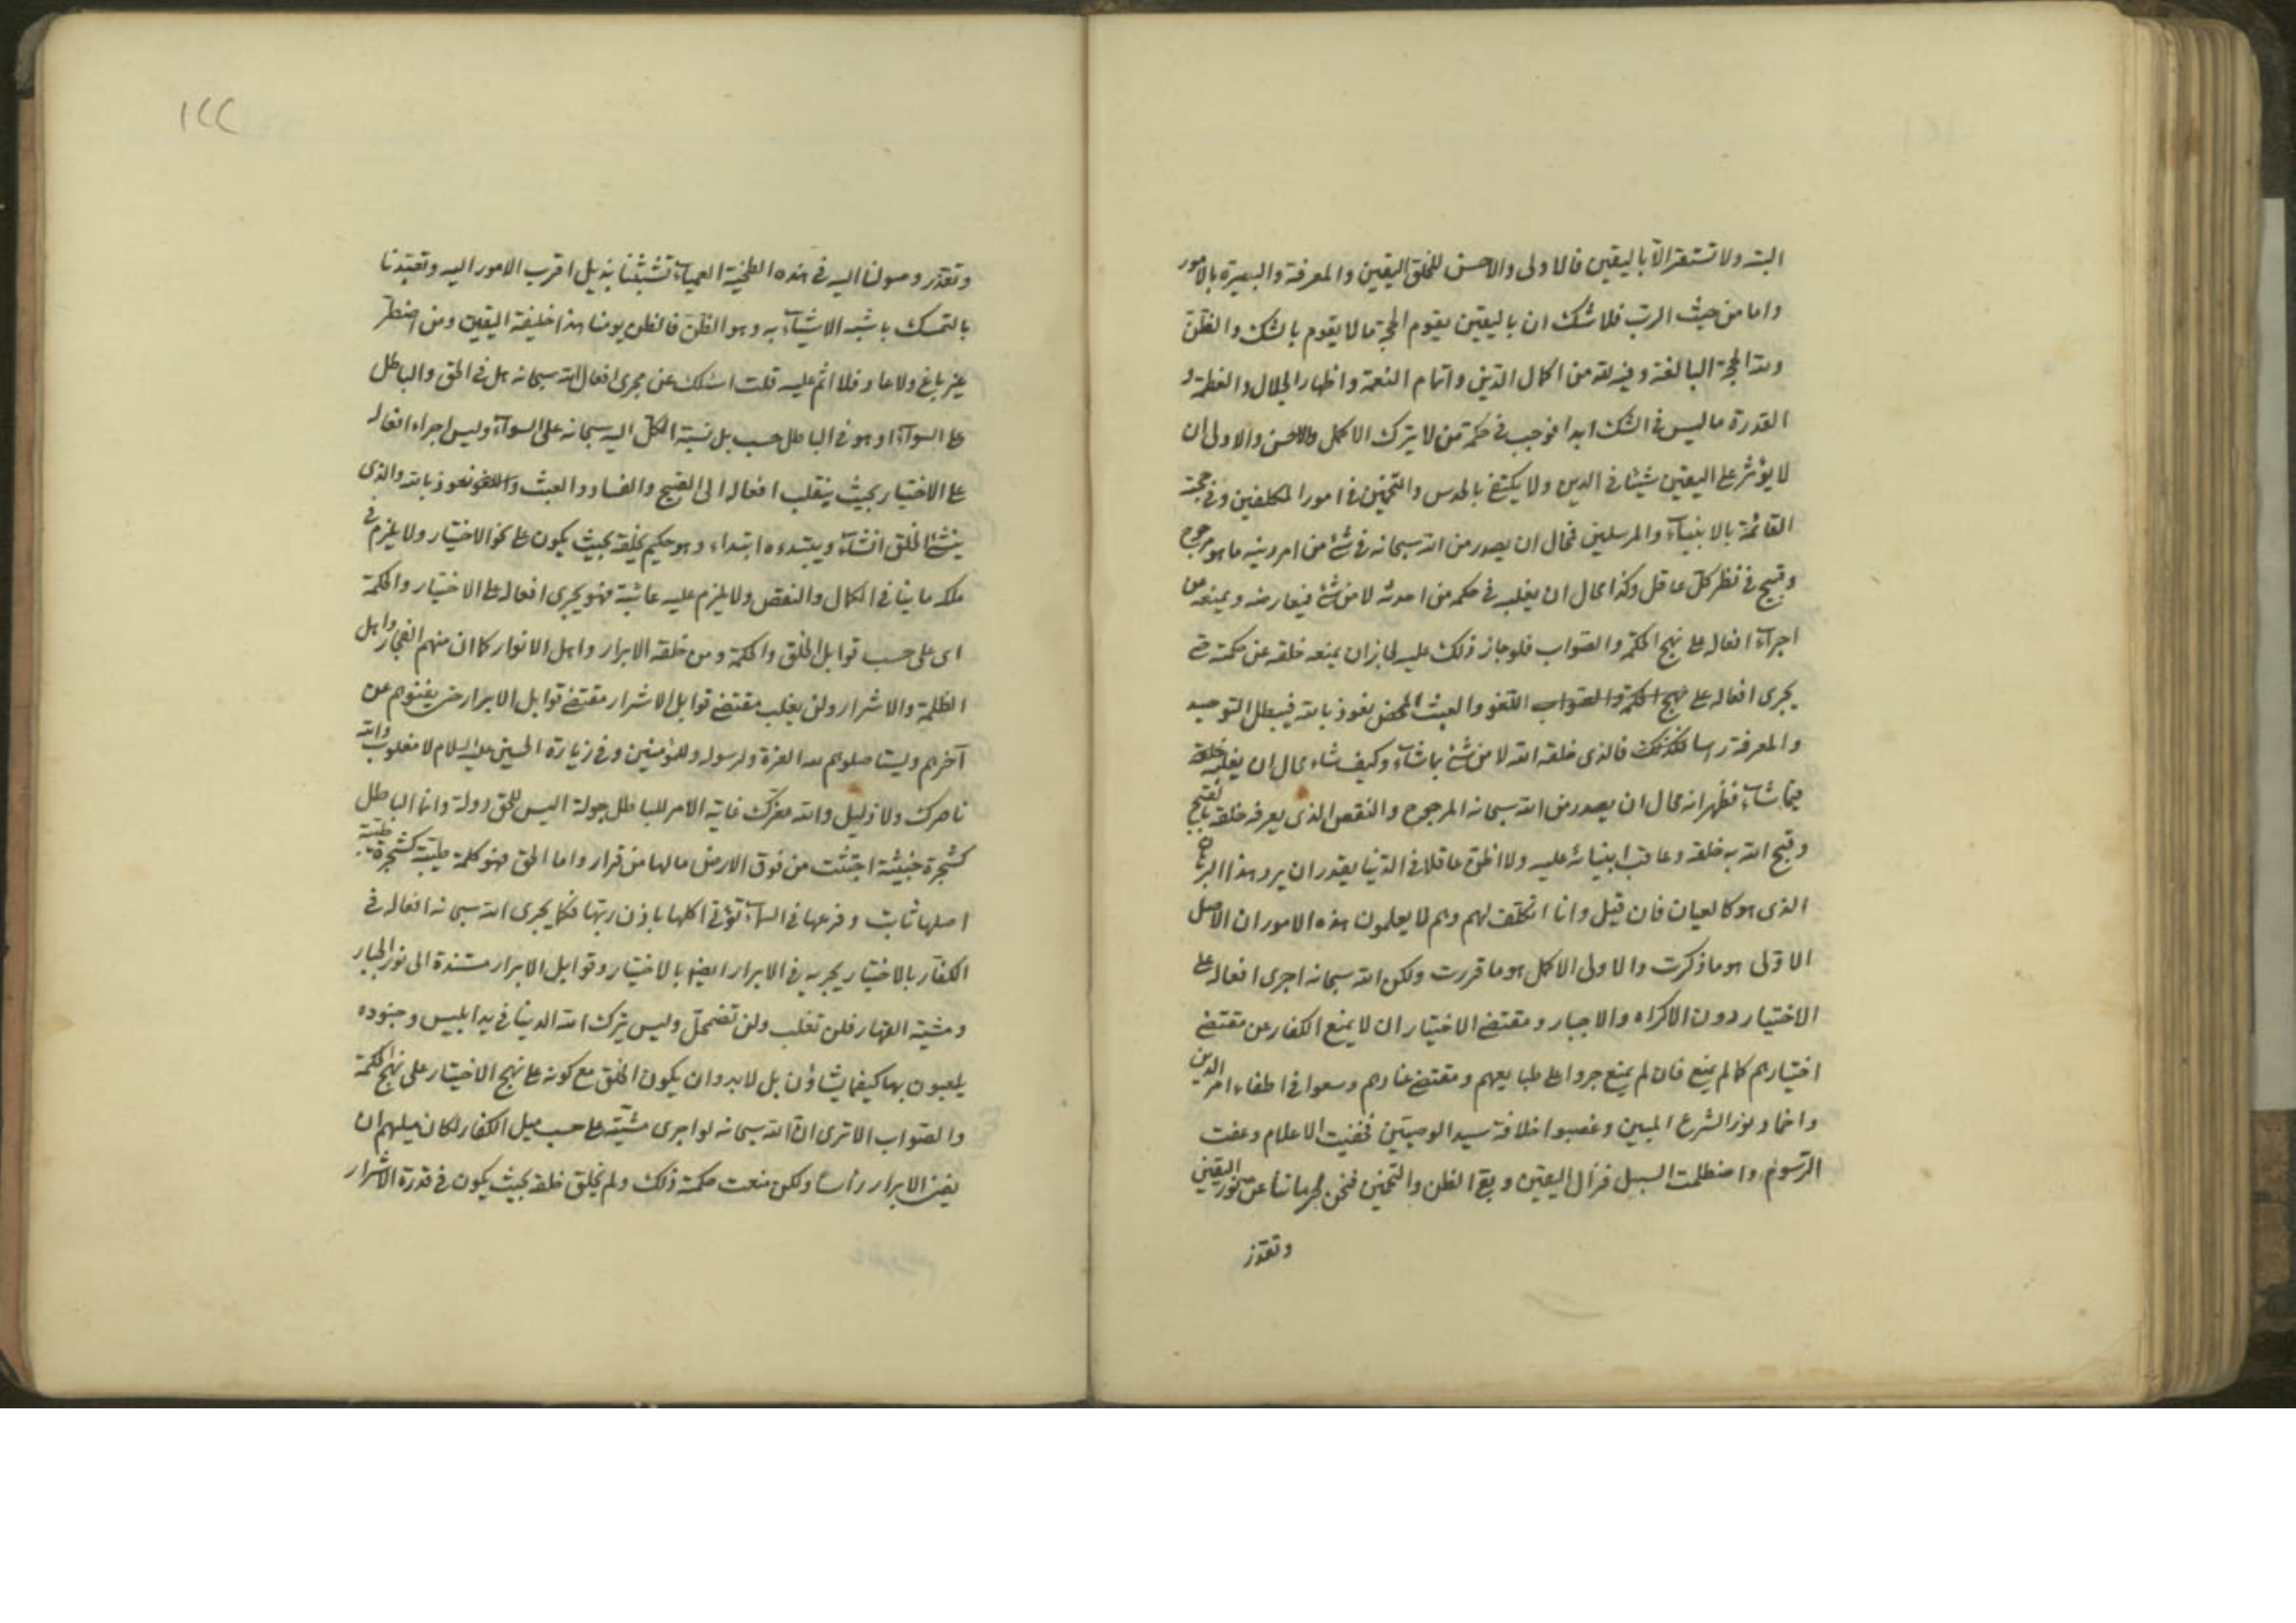 البتة ولا تستقر الّا باليقين فالاولى والاحسن للخلق اليقين والمعرفة والبصيرة بالامور
واما من حيث الرب فلا شك ان باليقين يقوم الحجة ما لا يقوم بالشك والظنّ
ولله الحجة البالغة وفيه لله من اكمال الدّين واتمام النعمة واظهار الجلال والعظمة و
القدرة ما ليس فى الشك ابدا فوجب فى حكمة من لا يترك الاكمل والاحسن والاولى ان
لا يؤثر على اليقين شيئا فى الدين ولا يكتفى بالحدس والتخمين فى امور المكلفين وفى حجته
القائمة بالانبياء والمرسلين فمحال ان يصدر من الله سبحانه فى شئ من امر دينه ما هو مرجوح
وقبيح فى نظر كلّ عاقل وكذا محال ان يغلبه فى حكمه من احدثه لا من شئ فيعارضه ويمنعه عن
اجراء افعاله على نهج الحكمة والصواب فلو جاز ذلك عليه لجاز ان يمنعه خلقه عن حكمته حتى
يجرى افعاله على نهج الحكمة والصواب اللغو والعبث المحض نعوذ بالله فيبطل التوحيد
والمعرفة رأسا فالذى خلقه الله لا من شئ بما شاء وكيف شاء محال ان يغلبه خلقه
فيما شاء فظهر انه محال ان يصدر من الله سبحانه المرجوح والنقص الذى يعرفه خلقه بالقبح
وقبح الله به خلقه وعاقب انبيائه عليه ولا اظن عاقلا فى الدّنيا يقدر ان يرد هذا البرهان
الذى هو كالعيان فان قيل وانا اتكلف لهم وهم لا يعلمون هذه الامور ان الاصل
الاوّلى هو ما ذكرت والاولى الاكمل هو ما قررت ولكن الله سبحانه اجرى افعاله على
الاختيار دون الاكراه والاجبار ومقتضى الاختيار ان لا يمنع الكفار عن مقتضى
اختيارهم كما لم يمنع فان لم يمنع جروا على طبايعهم ومقتضى عنادهم وسعوا فى اطفاء امر الدين
واخماد نور الشرع المبين وغصبوا خلافة سيد الوصيّين فخفيت الاعلام وعفت
الرّسوم واضظلمت السبل فزال اليقين وبقى الظن والتخمين فنحن لحرماننا عن نور اليقين
وتعذر
١٢٢
وتعذّر وصولنا اليه فى هذه الطخية العمياء تشبّثنا بذيل اقرب الامور اليه وتعبّدنا
بالتمسك باشبه الاشياء به وهو الظنّ فالظن يومنا هذا خليفة اليقين ومن اضطرّ
غير باغ ولا عاد فلا اثم عليه قلت اسئلك عن مجرى افعال الله سبحانه هل فى الحق والباطل
على السواء او هو فى الباطل حسب بل نسبة الكلّ اليه سبحانه على السواء وليس اجراء افعاله
على الاختيار بحيث ينقلب افعاله الى القبيح والفساد والعبث واللغو نعوذ بالله والذى
ينشئ الخلق انشاء ويبتدءه ابتداء وهو حكيم يخلقه بحيث يكون على نحو الاختيار ولا يلزم فى
ملكه ما ينافى الكمال والنقص ولا يلزم عليه عائبة فهو يجرى افعاله على الاختيار والحكمة
اى على حسب قوابل الخلق والحكمة ومن خلقه الابرار واهل الانوار كما ان منهم الفجار واهل
الظلمة والاشرار ولن يغلب مقتضى قوابل الاشرار مقتضى قوابل الابرار حتى يفنوهم عن
آخرهم ويستاصلوهم لله العزة ولرسوله وللمؤمنين وفى زيارة الحسين عليه السلام لا مغلوب والله
ناصرك ولا ذليل والله معزّك غاية الامر للباطل جولة اليس للحق دولة وانما الباطل
كشجرة خبيثة اجتثت من فوق الارض ما لها من قرار واما الحق فهو كلمة طيبة كشجرة طيبة
اصلها ثابت وفرعها فى السماء تؤتى اكلها باذن ربّها فكما يجرى الله سبحانه افعاله فى
الكفّار بالاختيار يجريه فى الابرار ايضا بالاختيار وقوابل الابرار مستندة الى نور الجبار
ومشية القهار فلن تغلب ولن تضمحلّ وليس يترك الله الدينا فى يد ابليس وجنوده
يلعبون بها كيفما يشاؤن بل لابد وان يكون الخلق مع كونه على نهج الاختيار على نهج الحكمة
والصّواب الا ترى ان الله سبحانه لو اجرى مشيّته على حسب ميل الكفار لكان ميلهم ان
يفنى الابرار رأسا ولكن منعت حكمته ذلك ولم يخلق خلقه بحيث يكون فى قدرة الاشرار